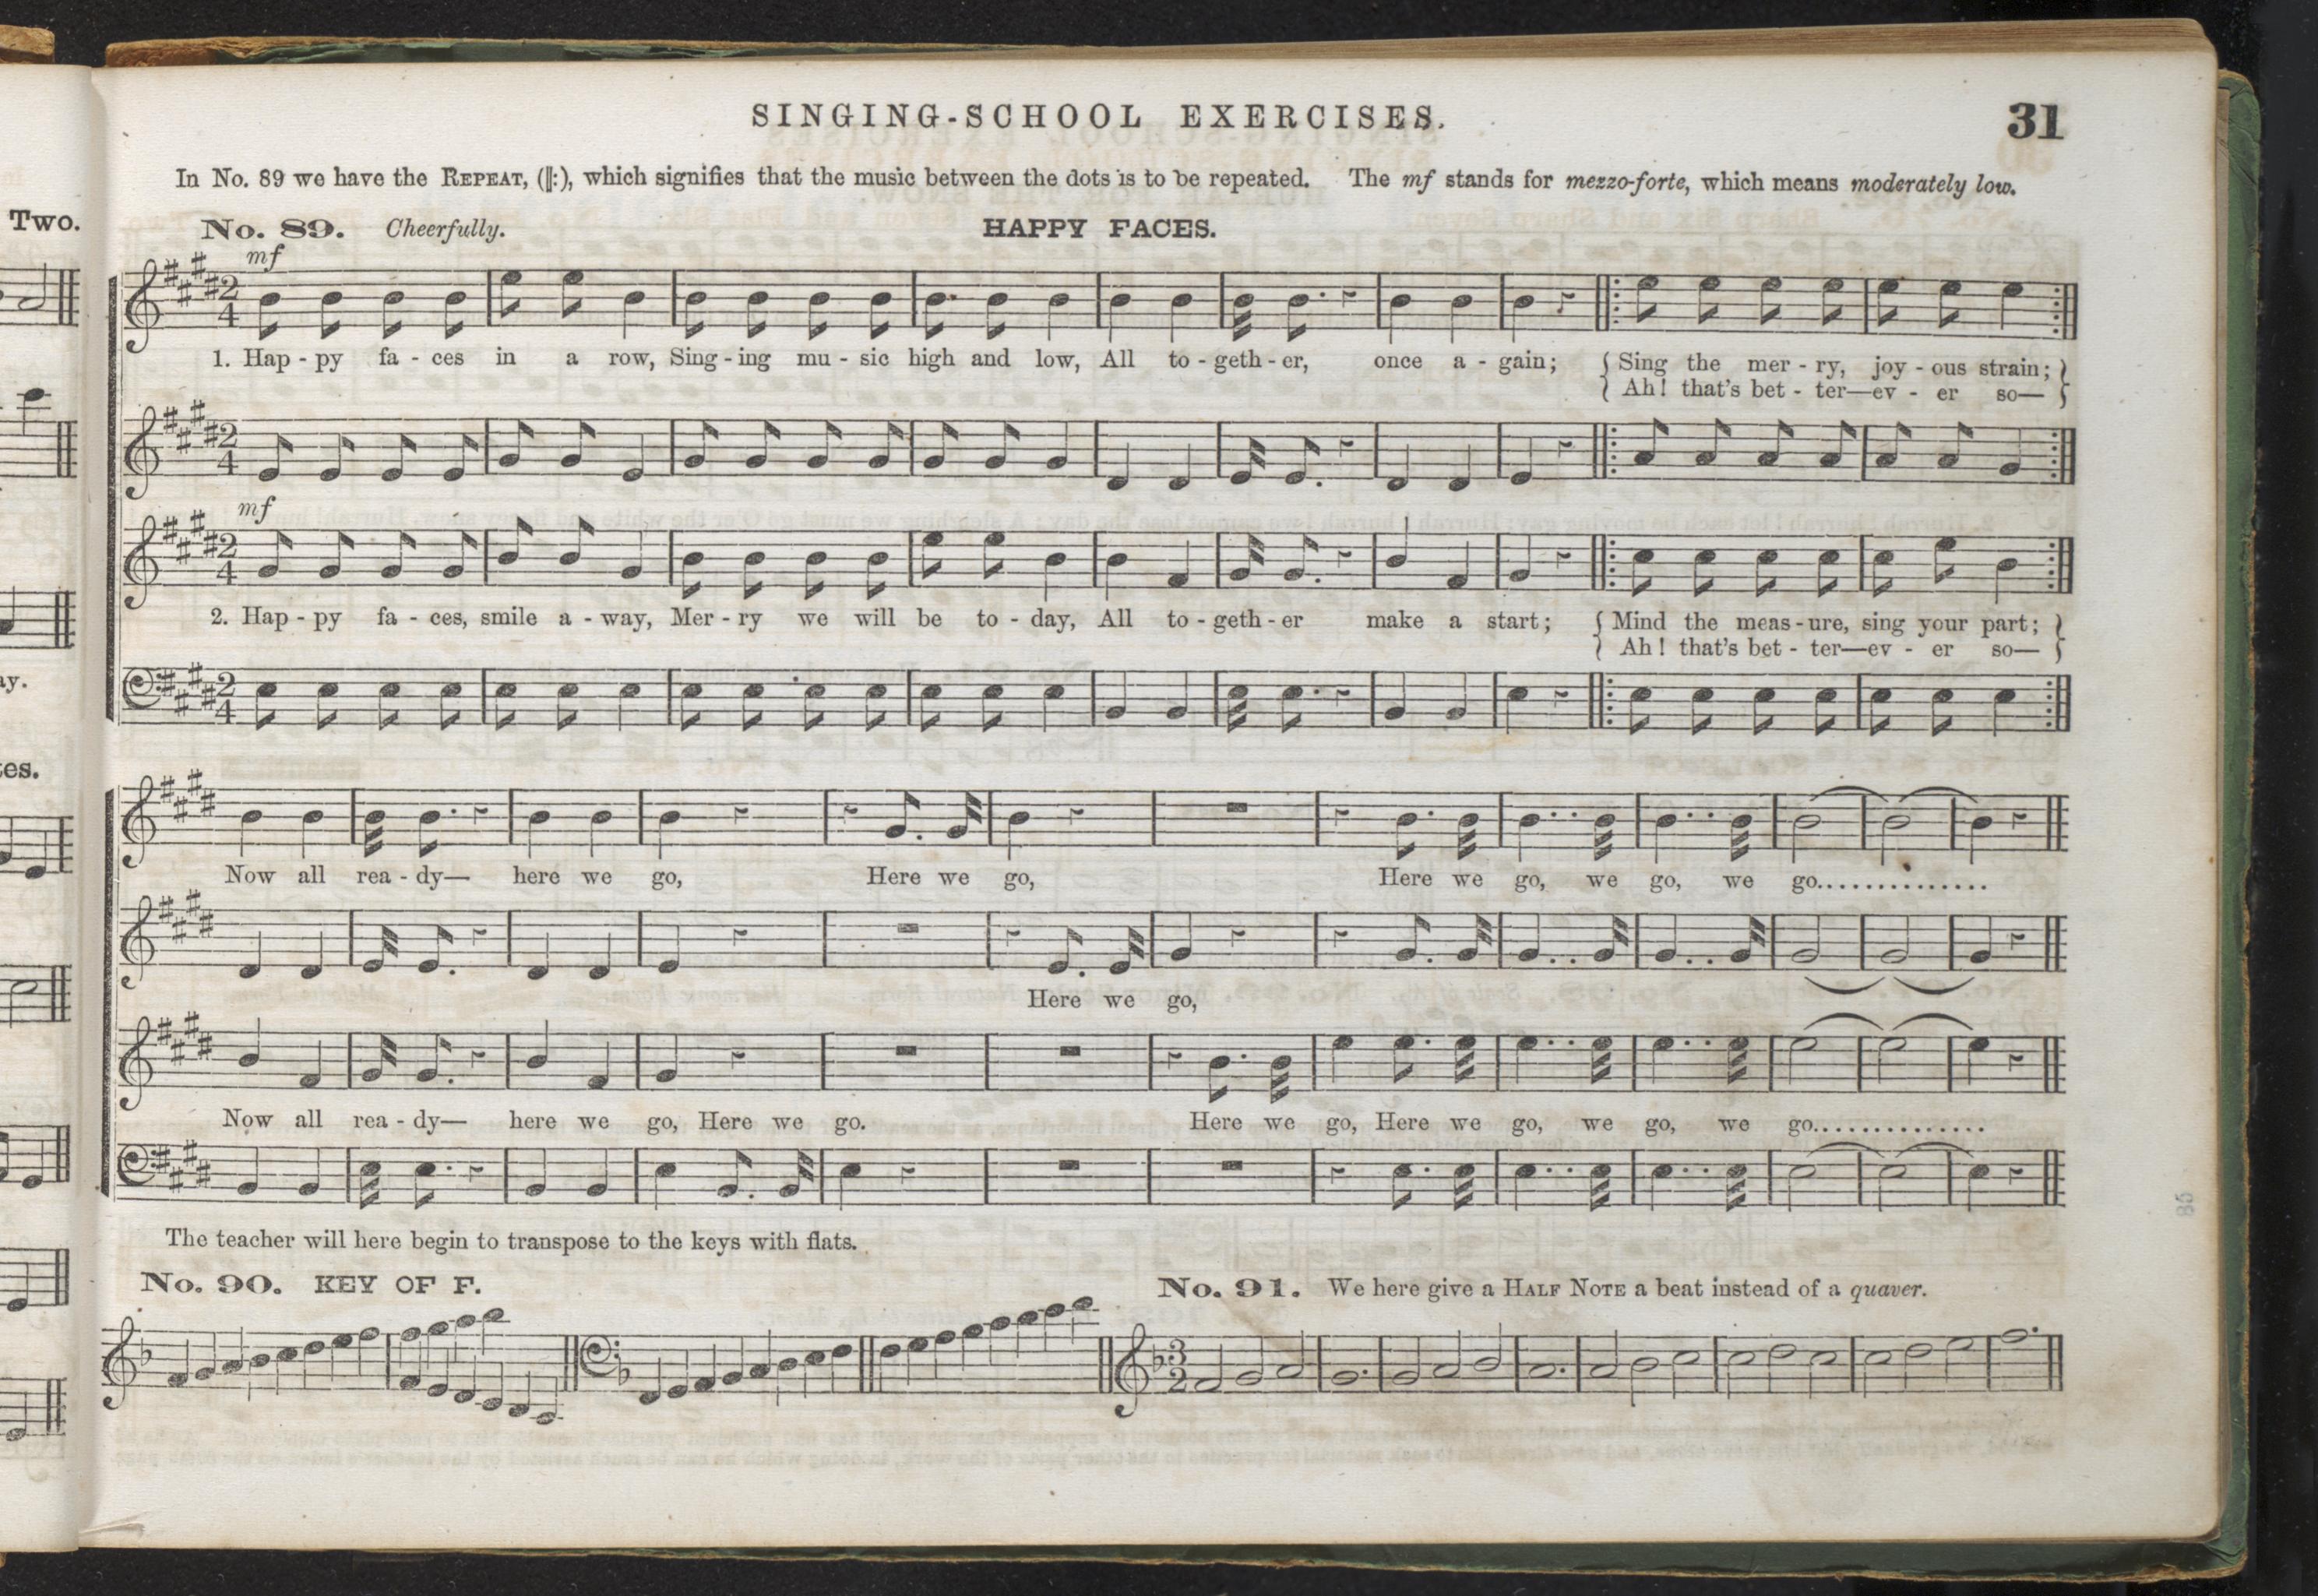 SINGING-SCHOOL EXERCISES. 31
In No. 89 we have the REPEAT, (‖:), which signifies that the music between the dots is to be repeated. The mf stands for mezzo-forte, which means moderately low.
Two.
No. 89. Cheerfully. HAPPY FACES.
mf
2
4
1. Hap - py fa - ces in a row, Sing - ing mu - sic high and low, All to - geth - er, once a - gain; { Sing the mer - ry, joy - ous strain; }
{ Ah! that's bet - ter—ev - er so— }
2
4
mf
2
4
2. Hap - py fa - ces, smile a - way, Mer - ry we will be to - day, All to - geth - er make a start; { Mind the meas - ure, sing your part; }
{ Ah! that's bet - ter—ev - er so— }
ay.
2
4
tes.
Now all rea - dy— here we go, Here we go, Here we go, we go, we go..............
Here we go,
Now all rea - dy— here we go, Here we go. Here we go, Here we go, we go, we go..............
The teacher will here begin to transpose to the keys with flats.
No. 90. KEY OF F. No. 91. We here give a HALF NOTE a beat instead of a quaver.
3
2